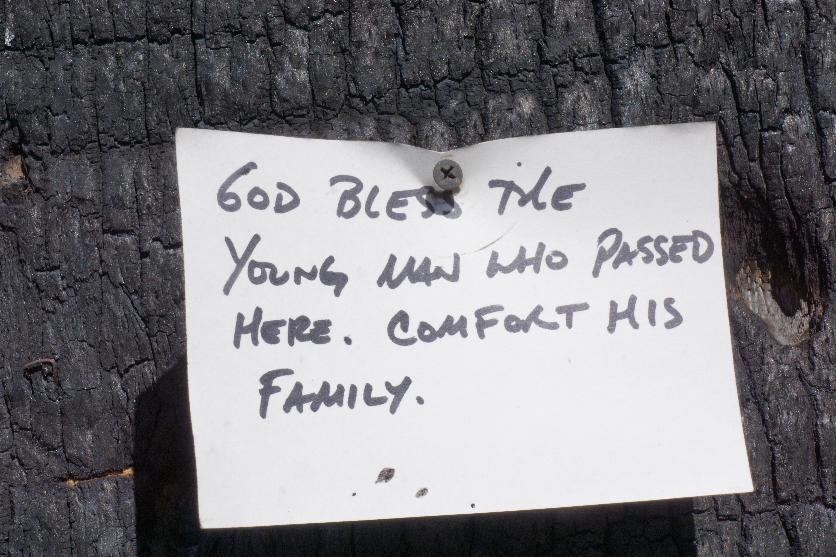 GOD BLESS THE
YOUNG MAN WHO PASSED
HERE. COMFORT HIS
FAMILY.